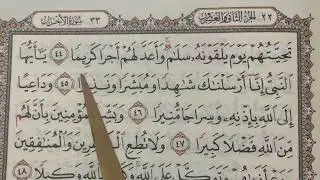 ٢٢ الجزء الثاني والعشرون ٣٣ سورة الأحزاب
تَحِيَّتُهُمْ يَوْمَ يَلْقَوْنَهُۥ سَلَٰمٌ وَأَعَدَّ لَهُمْ أَجْرًا كَرِيمًا ٤٤ يَٰٓأَيُّهَا
ٱلنَّبِىُّ إِنَّآ أَرْسَلْنَٰكَ شَٰهِدًا وَمُبَشِّرًا وَنَذِيرًا ٤٥ وَدَاعِيًا
إِلَى ٱللَّهِ بِإِذْنِهِۦ وَسِرَاجًا مُّنِيرًا ٤٦ وَبَشِّرِ ٱلْمُؤْمِنِينَ بِأَنَّ لَهُم
مِّنَ ٱللَّهِ فَضْلًا كَبِيرًا ٤٧ وَلَا تُطِعِ ٱلْكَٰفِرِينَ وَٱلْمُنَٰفِقِينَ
وَتَوَكَّلْ عَلَى ٱللَّهِ وَكَفَىٰ بِٱللَّهِ وَكِيلًا ٤٨